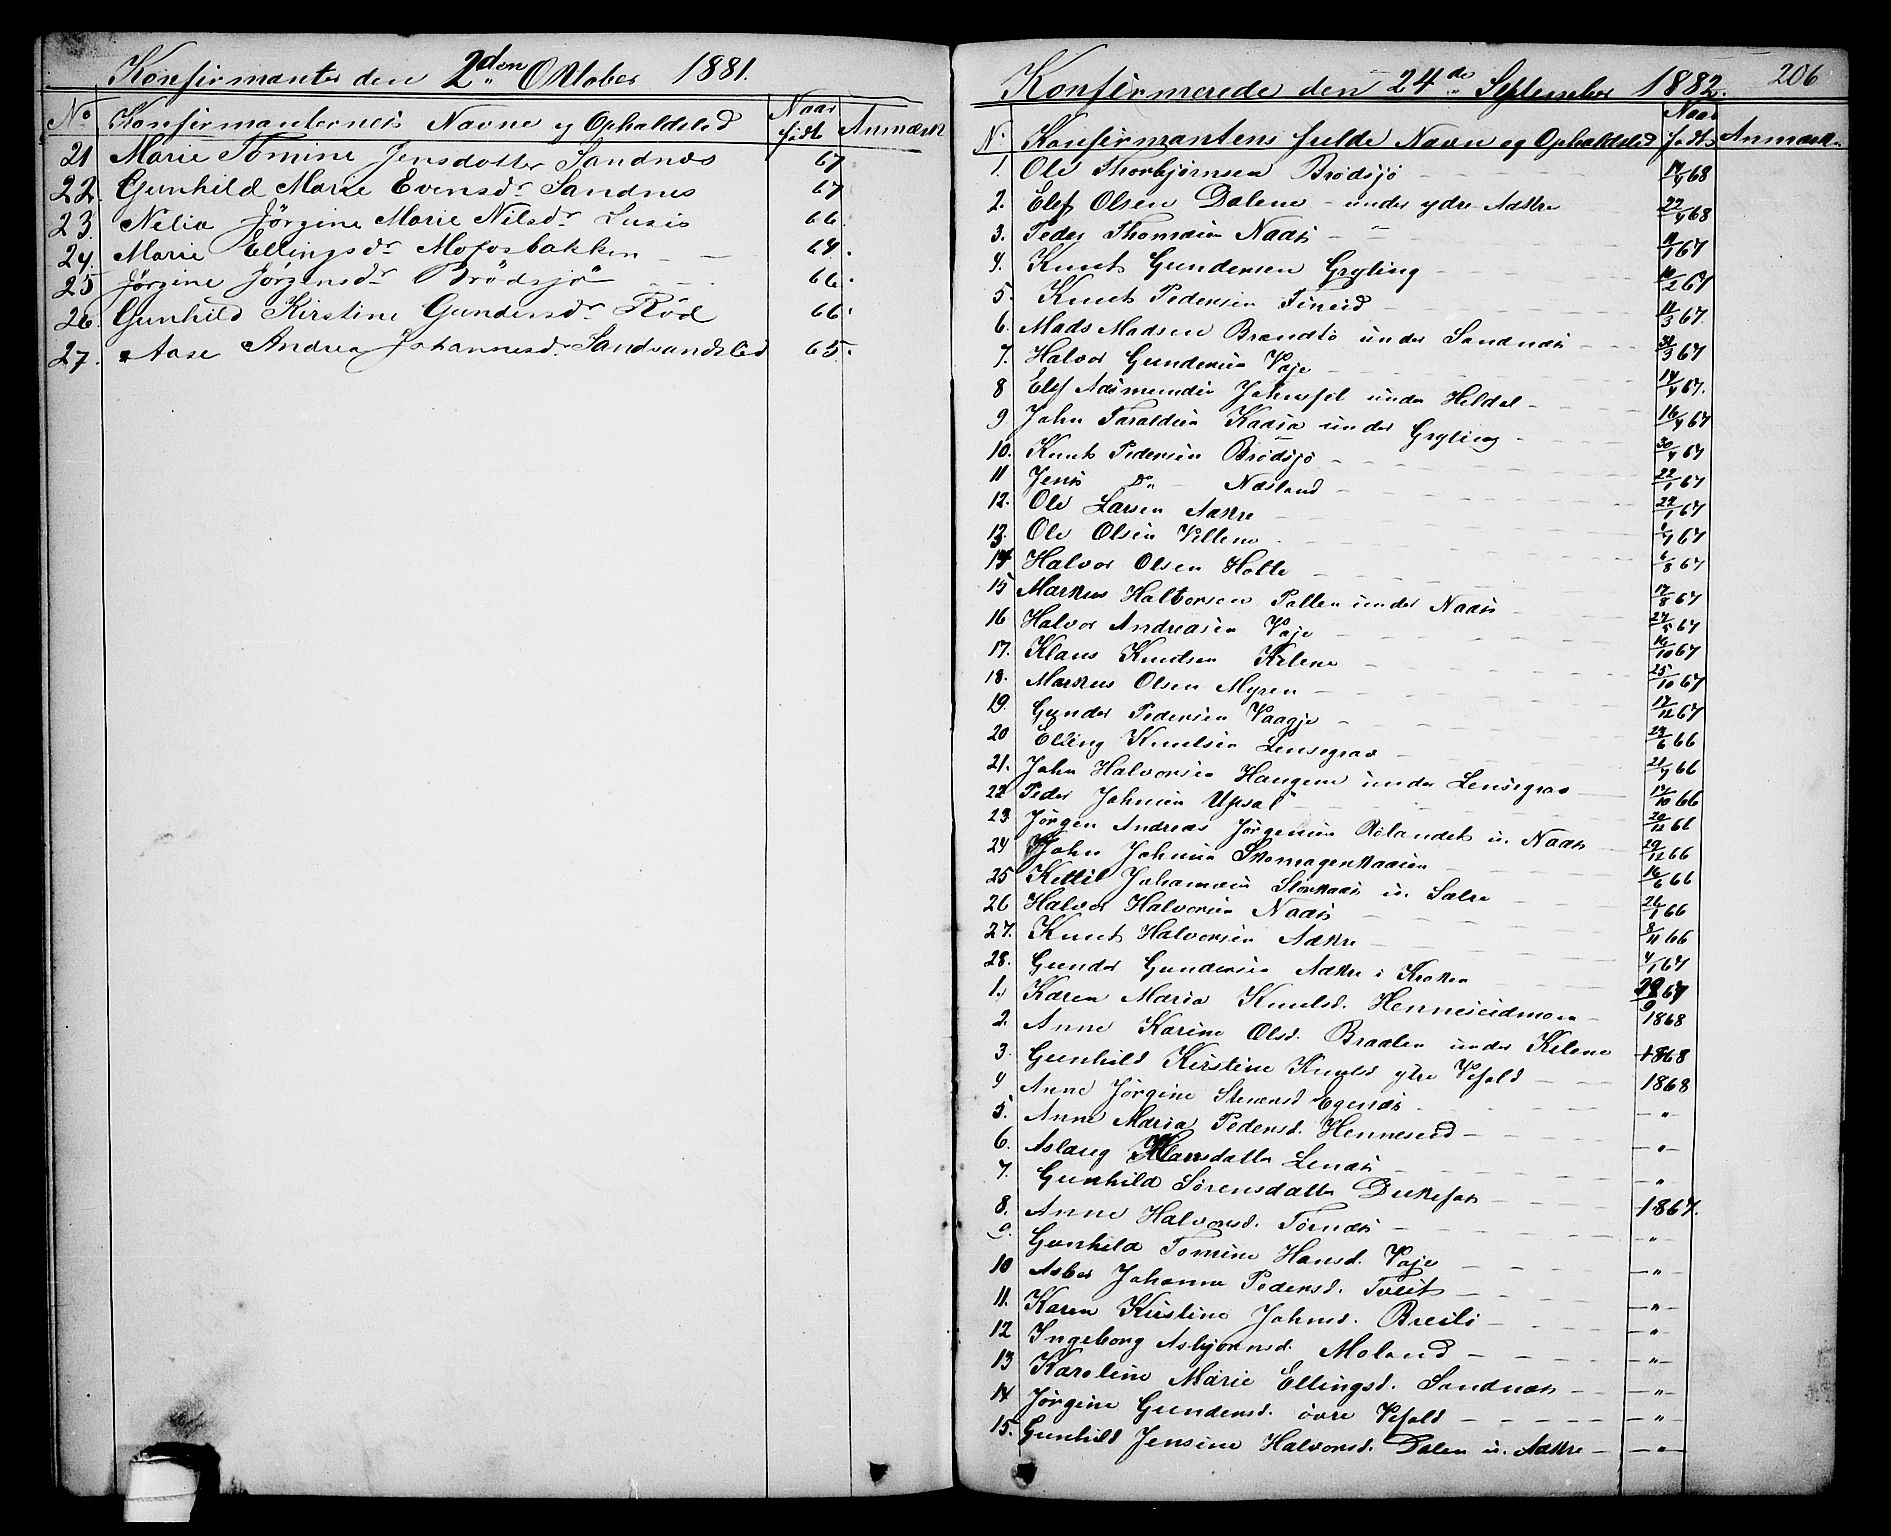 Konfirmanter den 2den Oktober 1881.
No Konfirmanternes Navne og Opholdsted Naar født Anmærk
21 Marie Tomine Jensdotter Sandnæs 67
22. Gunhild Marie Evensdr Sandnes 67
23. Nilia Jörgine Marie Nilsdr 66
24. Marie Ellingsdr Mofosbakken 64.
25 Jørgine Jørgensdr Brödsjö 66.
26. Gunhild Kirstine Gundersdr Röd 66.
27. Aase Andrea Johannesd. Sandsandsted 65.
206
Konfirmerede den 24de September 1882.
No Konfirmantens fulde Navn og Opholdsted Naar født Anmærk.
1. Ole Thorbjørnsen Brødsjø 68
2. Elef Olsen Dalene under ydre Aakre 22/4 68
3. Peder Thomesen Naas 67
4. Knut Gundersen Gryting 67
5. Knut Pedersen Tineid 67.
6. Mads Madsen Brandtö under Sandnæs 67
7. Halvor Gundersen Vaje 14/4 67.
8 Elef Aasmundsen Johnsfel under Heldal 16/4 67
9 John Taraldsen Kaasa under Gryting 30/4 67
10. Knut Pedersen Brødsjø 22/1 67
11 Jens Do Næsland 67
12. Ole Larsen Aakre 67
13. Ole Olsen Vellene 6/8 67
14 Halvor Olsen Holte 67
15 Markus Haltorsen Pollen under Naas 67
16 Halvor Andreasen Vaje 16/10 67
17. Klaus Knutsen Kilene 25/10 67
18. Markus Olsen Myren 67
19. Gunder Pedersen Vaagje 66
20 Elling Knutsen Lensegrav 66
21. John Halvorsen Haugene under Lensegrav 66
22 Peder Johnsen Upsal 20/12 66
23 Jørgen Andreas Jørgensen Rölandet u. Naas 29/12 66
24 John Johnsen Skomagerkaasen 16/6 66
25 Kittil Johannesen Storkaas u. Salre 26/1 66
26 Halvor Halvorsen Naas 8/11 66
27. Knut Halvorsen Aakre 4/1 67
28. Gunder Gundersen Aakre i Kroken 67
1. Karen Maria Knutsd. Henneseidmoen 1868
2. Anne Karine Olsd. Braaten under Kilene 1868
3. Gunhild Kirstine Knutsd ytre Vefald 1868
4 Anne Jørgine Stenersd Egenæs - " -
5. Anne Maria Pedersd. Henneseid - " -
6. Aslaug Hansdatter Lenæs - " -
7. Gunhild Sørensdatter 1867.
8. Anne Halvorsd. Tørnæs - " -
9. Gunhild Tomine Hansd. Vaje - " -
10 Asber Johanne Pedersd. Tveit - " -
11. Karen Kirstine Johnsd. Breili - " -
12 Ingeborg Asbjørnsd. Moland - " -
13 Karoline Marie Ellingsd. Sandnæs - " -
14 Jørgine Gundersd. övre Vefald - " -
15. Gunhild Jensine Halvorsd. Dalen u. Aakre - " -